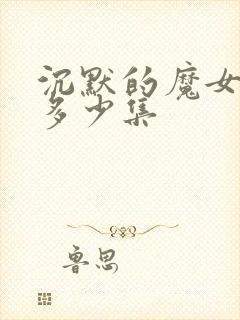 沉默的魔女
多少集
鲁思